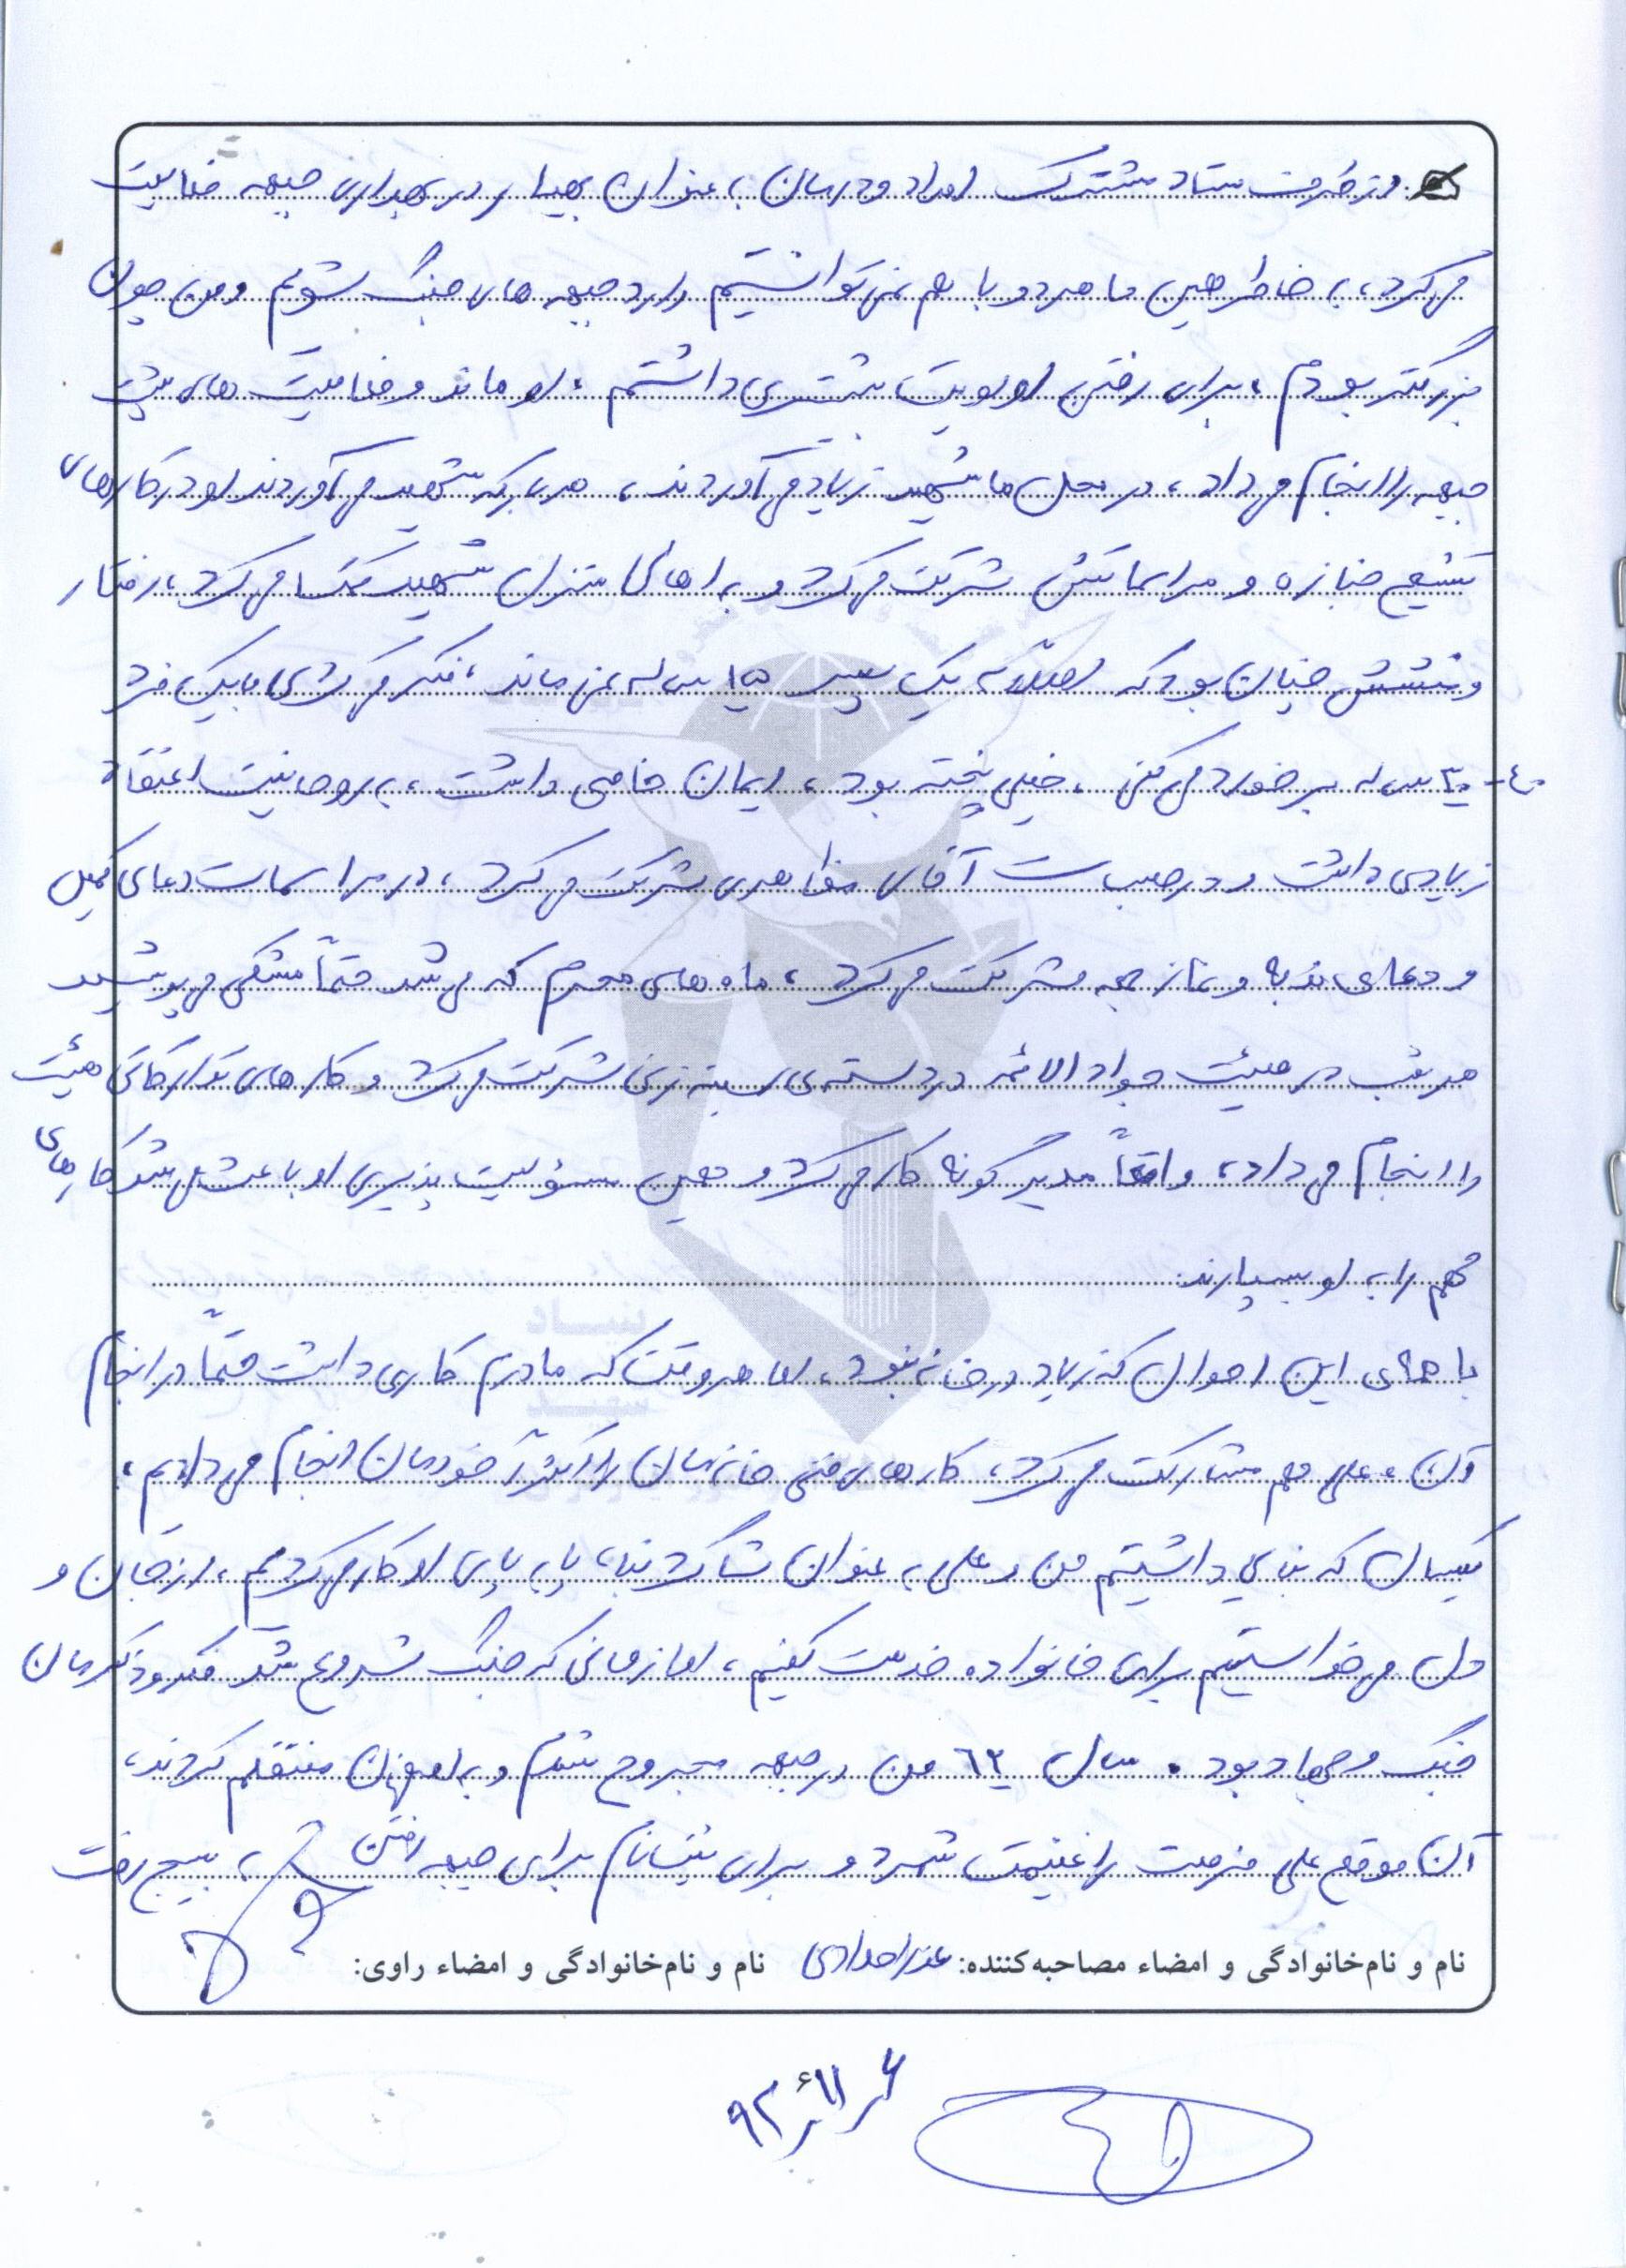 از طرف ستاد مشترک امداد و درمان به عنوان بهیار در بهداری جبهه فعالیت
می‌کرد، به خاطر همین ما هر دو با هم نمی‌توانستیم وارد جبهه های جنگ شویم و من چون
بزرگتر بودم، برای رفتن اولویت بیشتری داشتم، او ماند و فعالیت های پشت
جبهه را انجام می‌داد، در محل ما شهید زیاد می‌آوردند، هر بار که شهید می‌آوردند او در کارهای
تشیع جنازه و مراسماتش شرکت می‌کرد و به اهالی منزل شهید کمک می‌کرد، رفتار
و منشش چنان بود که اصلاً به یک پسر ۱۵ ساله نمی‌ماند، فکر می‌کردی با یک فرد
۴۰-۳۰ ساله برخورد می‌کنی، خیلی پخته بود، ایمان خاصی داشت، به روحانیت اعتقاد
زیادی داشت و در جلسات آقای مظاهری شرکت می‌کرد، در مراسمات دعای کمیل
و دعای ندبه و نماز جمعه شرکت می‌کرد، ماه های محرم که می‌شد حتماً مشکی می‌پوشید
هر شب در هیئت جواد الائمه در دسته‌ی سینه زنی شرکت می‌کرد و کارهای تدارکاتی هیئت
را انجام می‌داد، واقعاً مدیر گونه کار می‌کرد و همین مسؤلیت پذیری او باعث می شد کارهای
مهم را به او بسپارند.
با همه‌ی این احوال که زیاد در خانه نبود، اما هر وقت که مادرم کاری داشت حتماً در انجام
آن، علی هم مشارکت می‌کرد، کارهای فنی خانه‌مان را اکثراً خودمان انجام می‌دادیم،
یکسال که بنایی داشتیم من و علی به عنوان شاگرد بنا، پا به پای او کار می‌کردیم، از جان و
دل می‌خواستیم برای خانواده خدمت کنیم، اما از زمانی که جنگ شروع شد فکر و ذکرمان
جنگ و جهاد بود. سال ۶۲ من در جبهه مجروح شدم و به اصفهان منتقلم کردند،
آن موقع علی فرصت را غنیمت شمرد و برای ثبت نام برای جبهه رفتن، بسیج رفت
نام و نام‌خانوادگی و امضاء مصاحبه‌کننده: نام و نام‌خانوادگی و امضاء راوی: